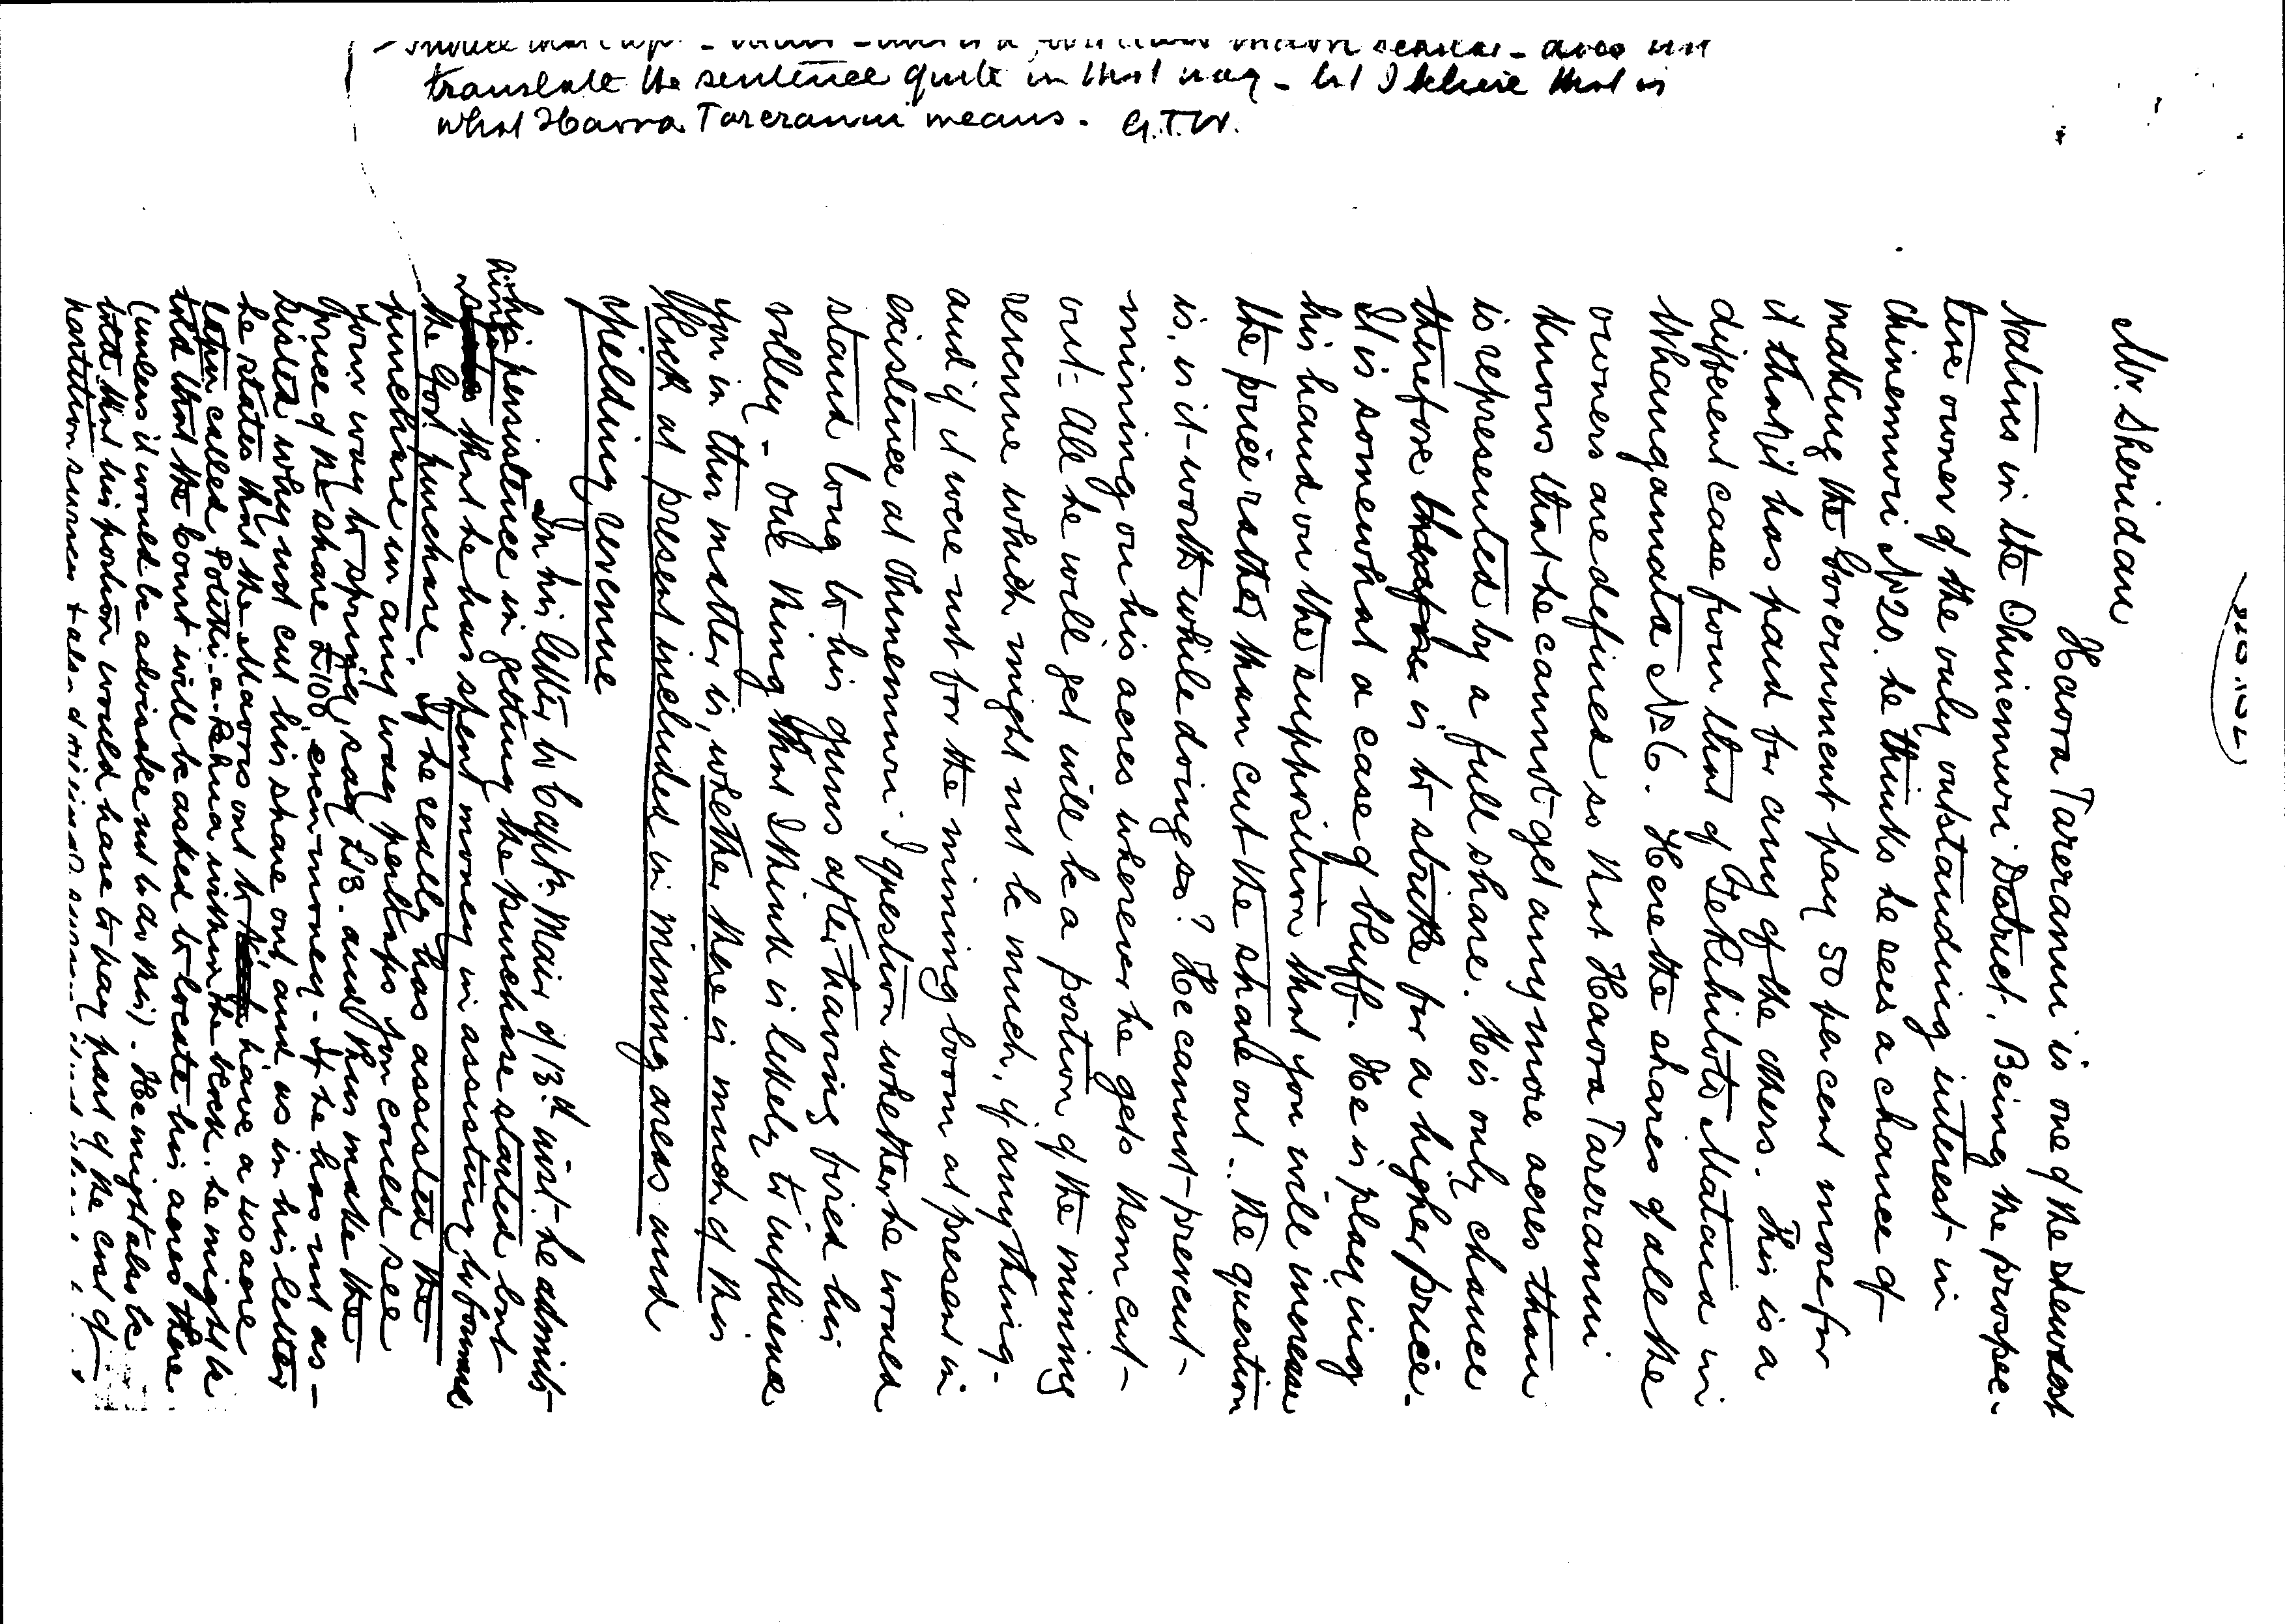 Mr. Sheridan
Haora Tareranui is one of the shrewdest
Natives in the Ohinemuri District. Being the prospec-
tive owner of the only outstanding interest in
Ohinemuri No 20. he thinks he sees a chance of
making the Government pay 50 per cent more for
it than it has paid for any of the others. This is a
different case from that of Te Kihitoto Mataia in
Whangamata No 6. Here the shares of all the
owners are defined so that Haora Tareranui
knows that he cannot get any more acres than
is represented by a full share. His only chance
therefore is to strike for a higher price.
It is somewhat a case of bluff. He is playing
his hand on the supposition that you will increase
the price rather than cut the share out. The question
is, is it worth while doing so? He cannot prevent
mining on his acres wherever he gets them cut
out - All he will get will be a portion of the mining
revenue which might not be much, if anything -
and if it were not for the mining boom at present in
existence at Ohinemuri I question whether he would
stand long to his guns after having fired his
volley - One thing that I think is likely to influence
you in this matter is, whether there is much of this
block at present included in mining areas and
yielding revenue
In his letter to Captn Mair of 13th inst. he admits
his persistence in getting the purchase started but
that he has spent money in assisting to forward
the Govt purchase. If he really has assisted the
purchase in any way perhaps you could see
your way to spring, say £18. and thus make the
price of the share £100 even money - If he has not as-
sisted why not cut his share out, and, as in his letter
he states that the Maoris ont to have a
called within the block. he might be
told that the Court will be asked to locate his acres there
(unless it would be advisable not to do this). He might also be
told that his portion would have to pay part of the cost of
partition surveys & also
translate the sentence quite in that way - but I believe that is
what Haora Tareranui means. G.T.W.